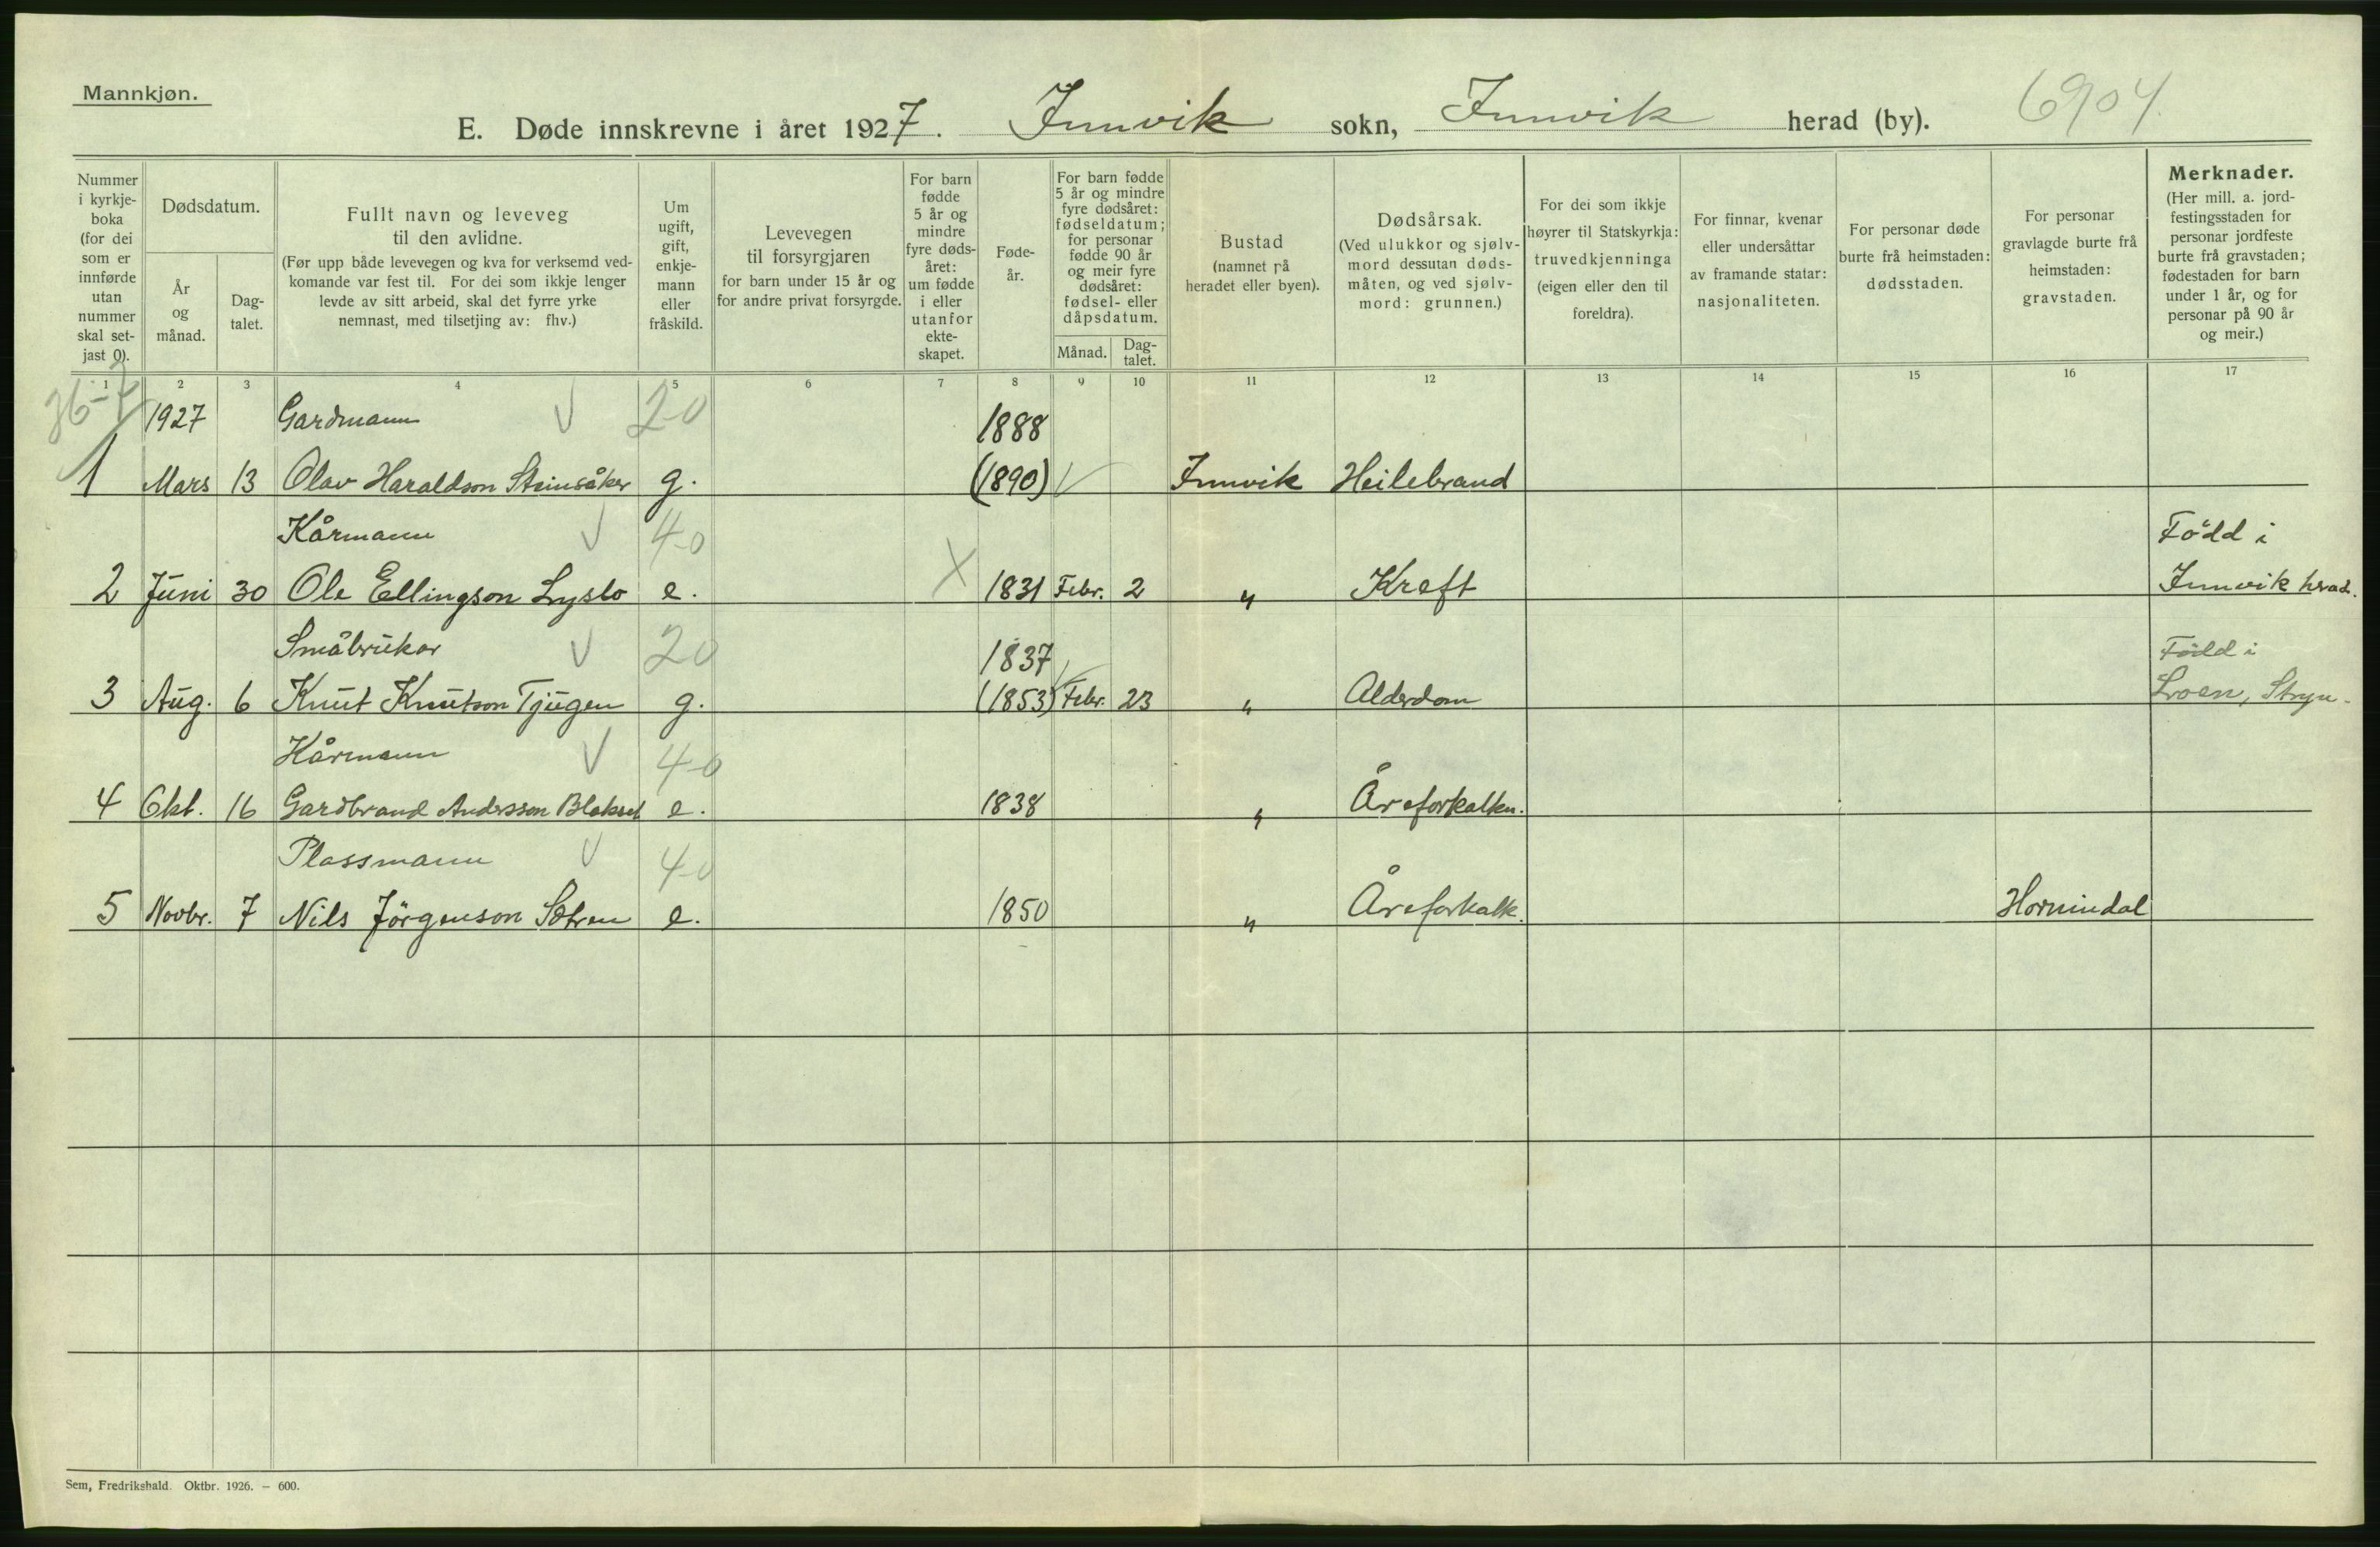 Mannkjøn.
E. Døde innskrevne i året 1927. Innvik sokn, Innvik herad (by). 6904.
Nummer i kyrkjeboka (for dei som er innførde utan nummer skal setjast 0).
Dødsdatum.
År og månad.
Dagtalet.
Fullt navn og leveveg til den avlidne.
(Før upp både levevegen og kva for verksemd vedkomande var fest til. For dei som ikkje lenger levde av sitt arbeid, skal det fyrre yrke nemnast, med tilsetjing av: fhv.)
Um ugift, gift, enkjemann eller fråskild.
Levevegen til forsyrgjaren
for barn under 15 år og for andre privat forsyrgde.
For barn fødde 5 år og mindre fyre dødsåret: um fødde i eller utanfor ekteskapet.
Fødeår.
For barn fødde 5 år og mindre fyre dødsåret: fødseldatum; for personar fødde 90 år og meir fyre dødsåret: fødsel- eller dåpsdatum.
Månad.
Dagtalet.
Bustad
(namnet på heradet eller byen).
Dødsårsak.
(Ved ulukkor og sjølvmord dessutan dødsmåten, og ved sjølvmord: grunnen.)
For dei som ikkje høyrer til Statskyrkja: truvedkjenninga (eigen eller den til foreldra).
For finnar, kvenar eller undersåttar av framande statar: nasjonaliteten.
For personar døde burte frå heimstaden: dødsstaden.
For personar gravlagde burte frå heimstaden: gravstaden.
Merknader.
(Her mill. a. jordfestingsstaden for personar jordfeste burte frå gravstaden; fødestaden for barn under 1 år, og for personar på 90 år og meir.)
1 2 3 4 5 6 7 8 9 10 11 12 13 14 15 16 17
36-7
1927 Gardmann 20 1888
1 Mars 13 Olav Haraldson Steinsåker g. (1890) Innvik Heilebrand
Kårmann 40 Född i
2 Juni 30 Ole Ellingson Lyslo e. X 1831 Febr. 2 " Kreft Innvik herad.
Småbrukar 20 1837 Född i
3 Aug. 6 Knut Knutson Tjugen g. (1853) Febr. 23 " Alderdom Loen, Stryn.
Kårmann 40
4 Okt. 16 Gardbrand Andersson Blakset e. 1838 " Åreforkalkn.
Plassmann 40
5 Novbr. 7 Nils Jörgenson Sætren e. 1850 " Åreforkalk. Hornindal
Sem, Fredrikshald. Oktbr. 1926. — 600.